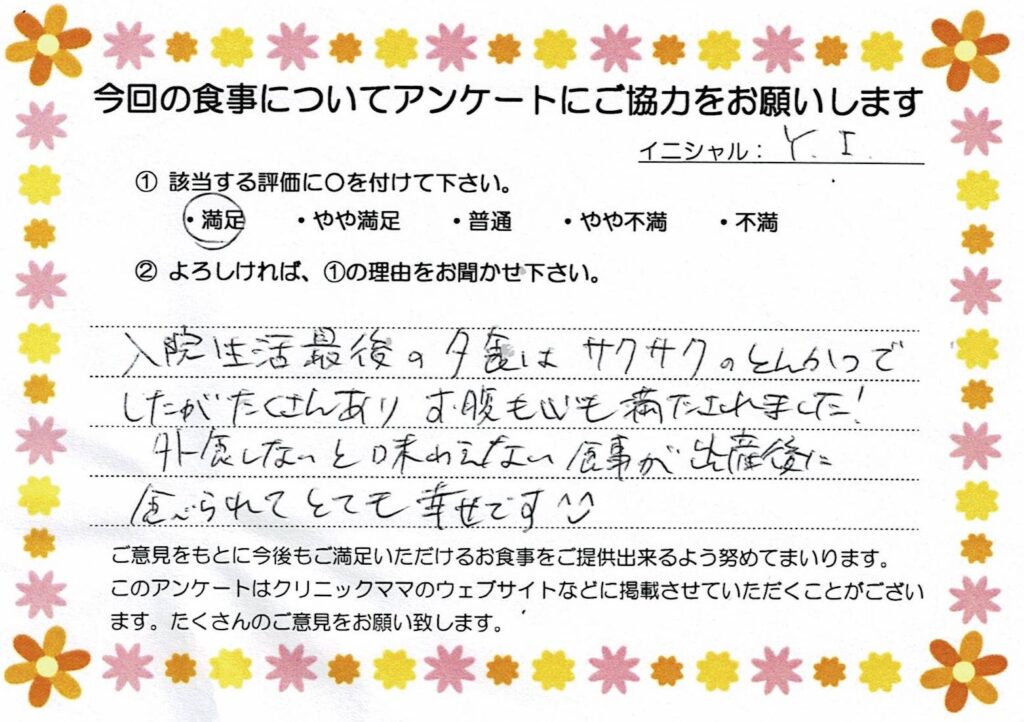 今回の食事についてアンケートにご協力をお願いします
イニシャル: Y. I.
① 該当する評価に○を付けて下さい。
・満足 ・やや満足 ・普通 ・やや不満 ・不満
② よろしければ、①の理由をお聞かせ下さい。
入院生活最後の夕食は サクサクのとんかつで
したがたくさんあり お腹も心も満たされました!
外食しないと味わえない食事が出産後に
食べられてとても幸せです^^
ご意見をもとに今後もご満足いただけるお食事をご提供出来るよう努めてまいります。
このアンケートはクリニックママのウェブサイトなどに掲載させていただくことがござい
ます。たくさんのご意見をお願い致します。